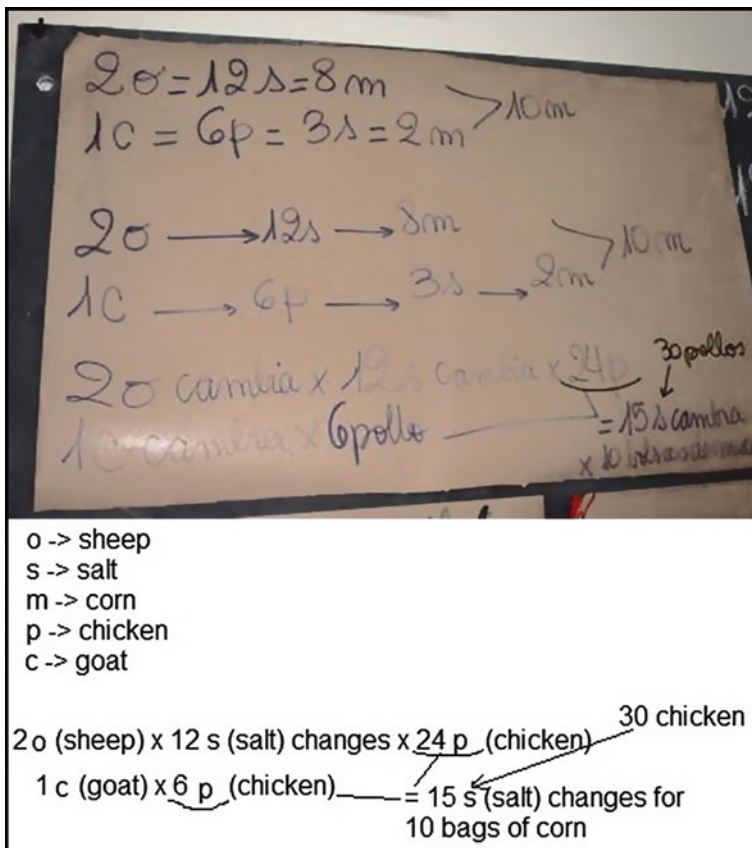 2o = 12s = 8m
1c = 6p = 3s = 2m
10m
2o → 12s → 8m
1c → 6p → 3s → 2m
10m
2o cambia x 12s cambia x 24p
30 pollos
1c cambia x 6pollo
= 15s cambia
x 10 bolsas de
o -> sheep
s -> salt
m -> corn
p -> chicken
c -> goat
30 chicken
2o (sheep) x 12 s (salt) changes x 24 p (chicken)
1 c (goat) x 6 p (chicken)
= 15 s (salt) changes for
10 bags of corn